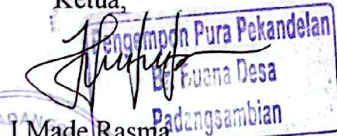 Ketua,
Pengempon Pura Pekandelan
Br. Buana Desa
Padangsambian
I Made Rasma